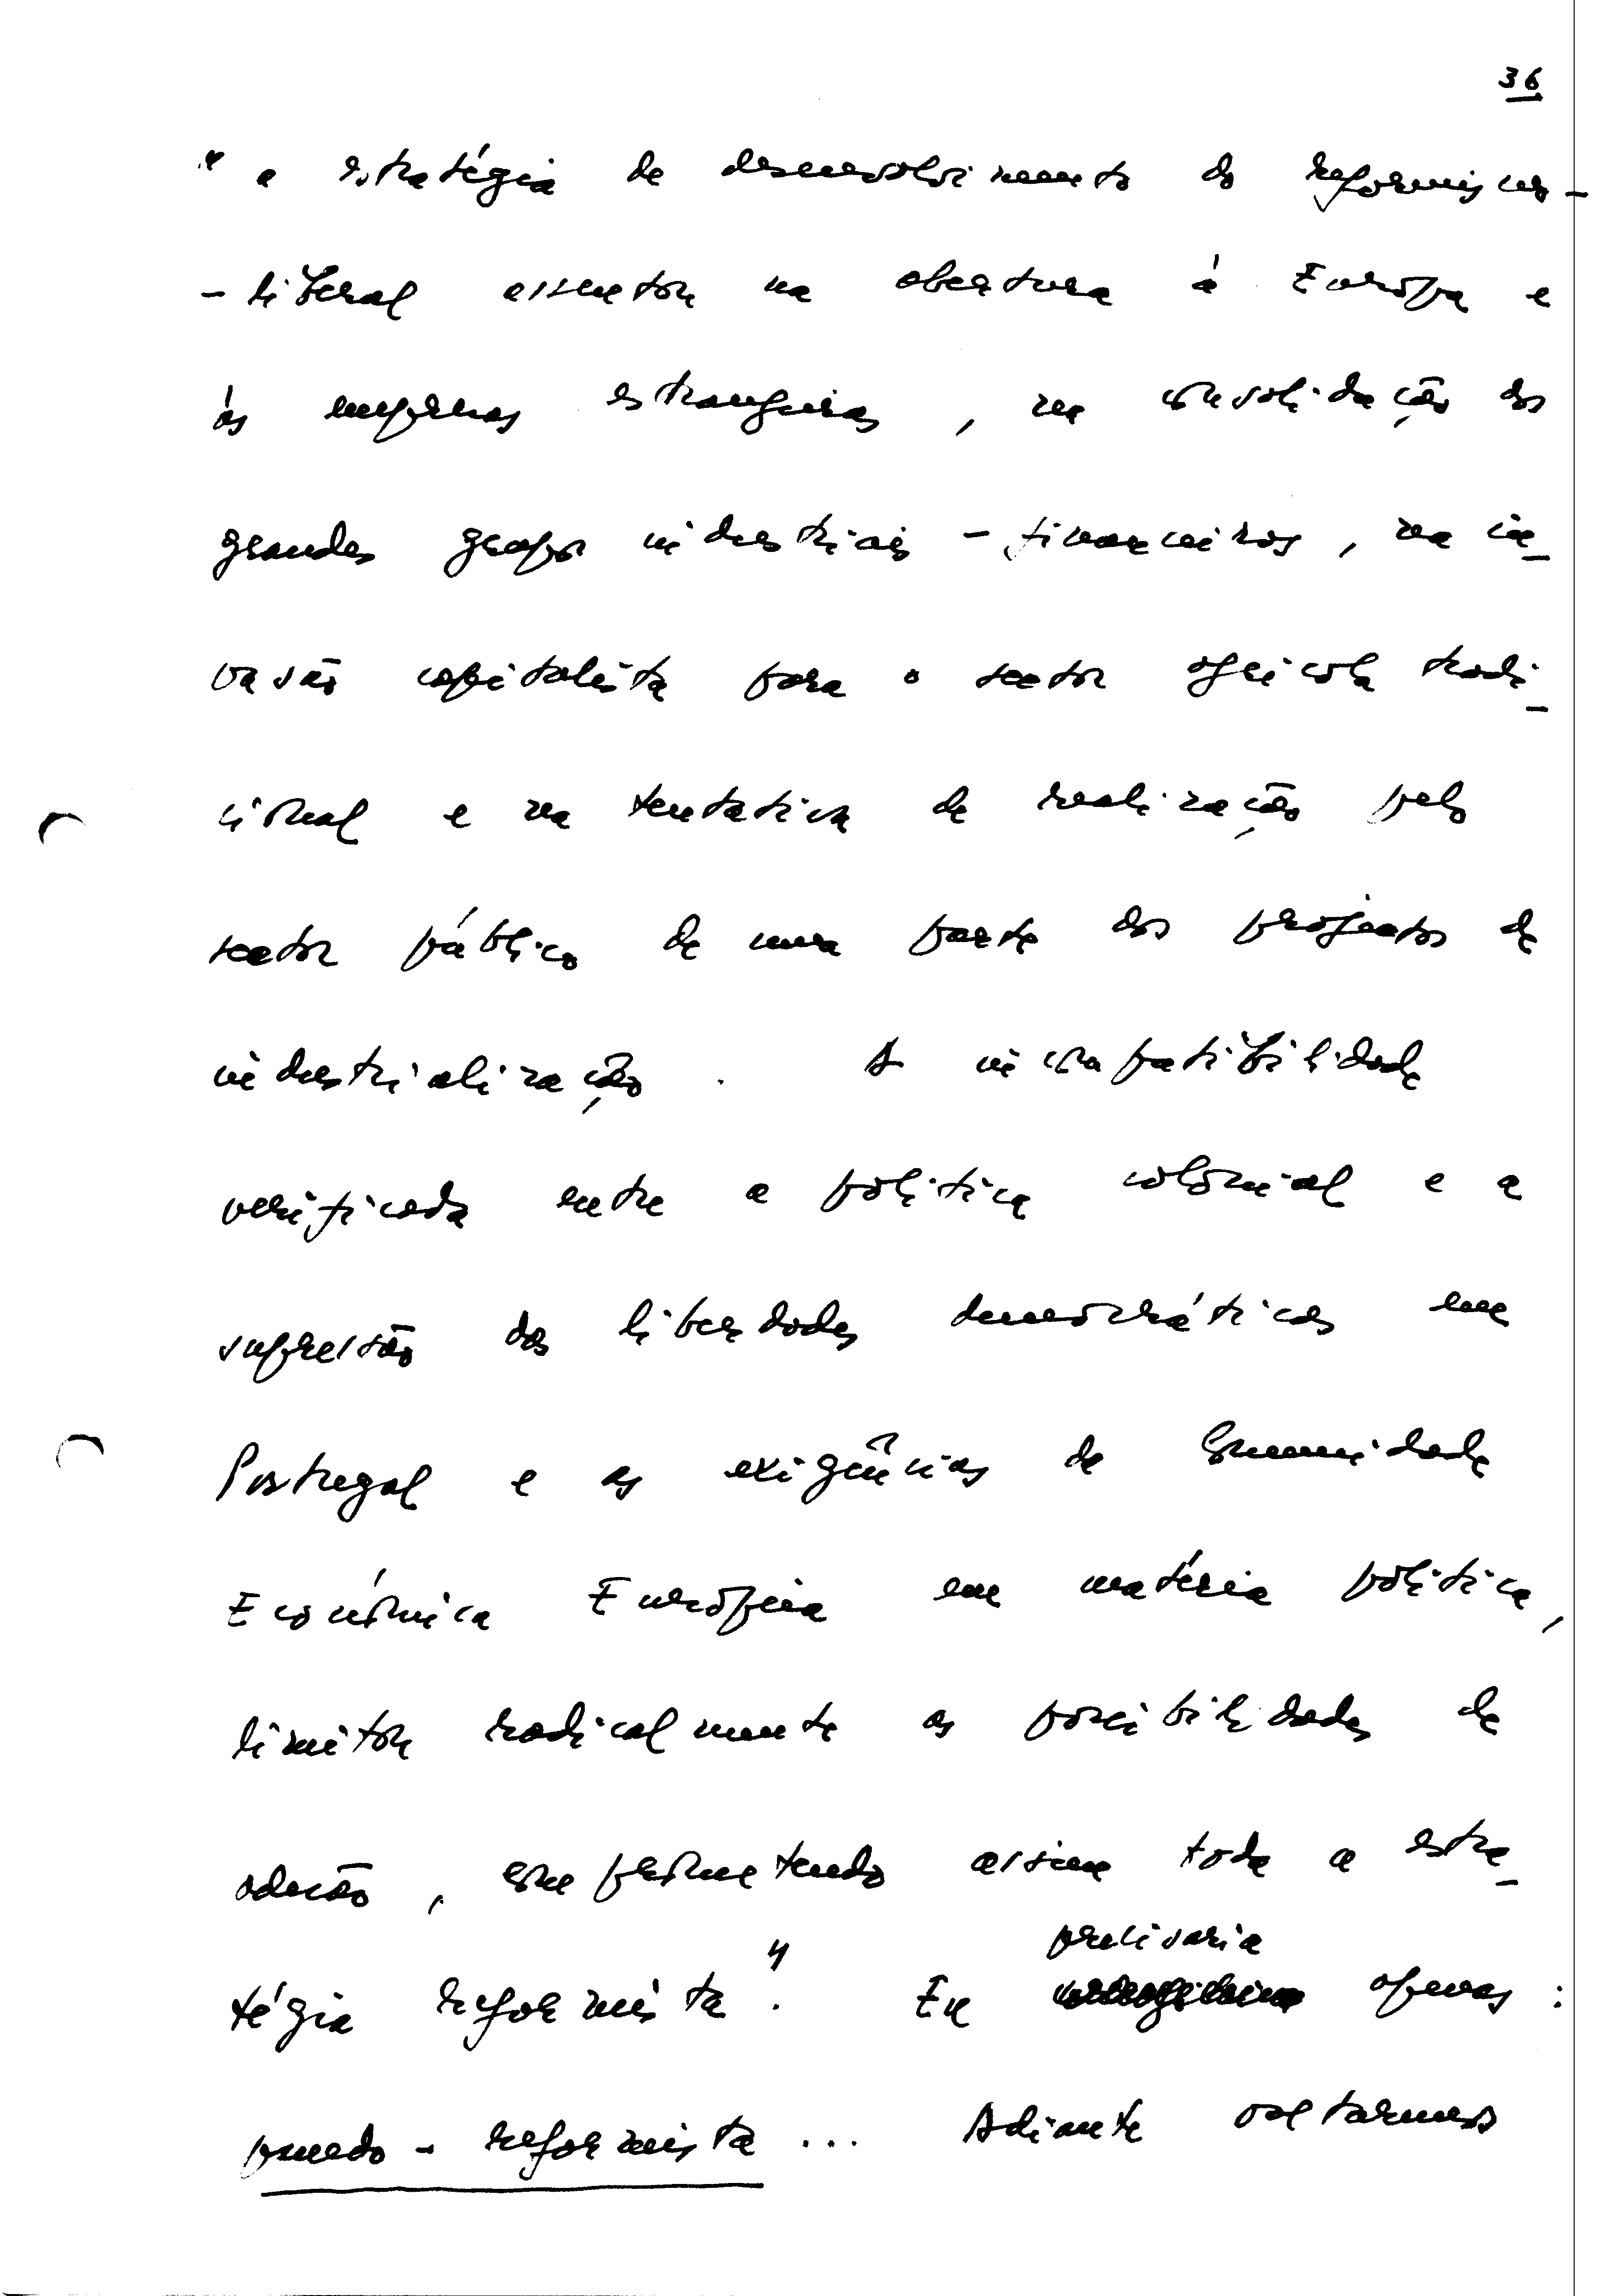 36
" a estratégia de desenvolvimento do reformismo-
-liberal assentou na abertura à Europa e
às empresas estrangeiras, na consolidação dos
grandes grupos industriais-financeiros, na in-
vasão capitalista para o sector agrícola tradi-
cional e na tentativa de realização pelo
sector público de uma parte dos projectos de
industrialização. A incompatibilidade
verificada entre a política colonial e a
supressão das liberdades democráticas em
Portugal e as exigências da Comunidade
Económica Europeia em matéria política,
limitou radicalmente as possibilidades de
adesão, comprometendo assim toda a estra-
tégia reformista". Eu precisaria apenas:
pseudo-reformista... Adiante voltaremos